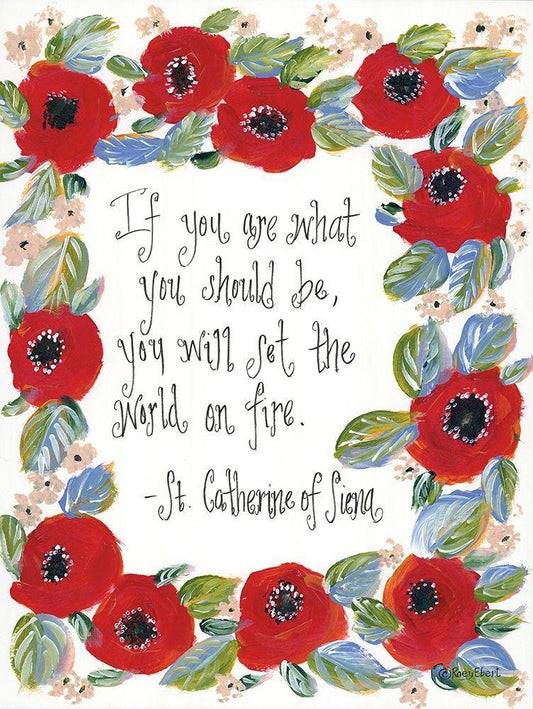 If you are what
you should be,
you will set the
world on fire.
-St. Catherine of Siena
© Roey Ebert